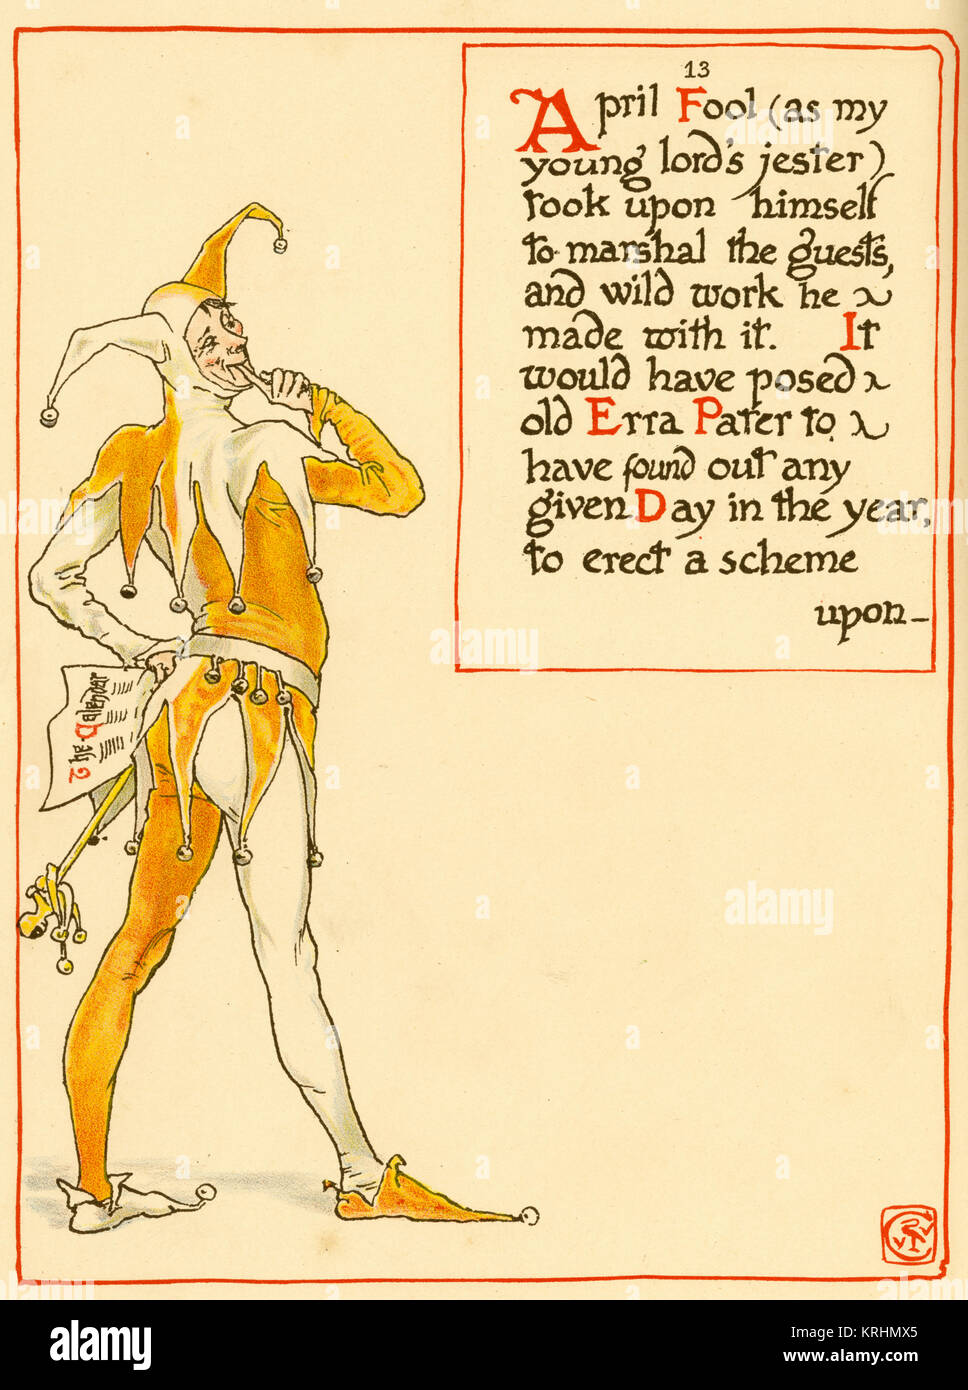 13
April Fool (as my
young lord's jester)
took upon himself
to marshal the guests,
and wild work he
made with it. It
would have posed
old Erra Pater to,
have found out any
given Day in the year,
to erect a scheme
upon-
The Calendar
a alamy
alamy
a
alamy
alamy
Image ID: KRHMX5
www.alamy.com